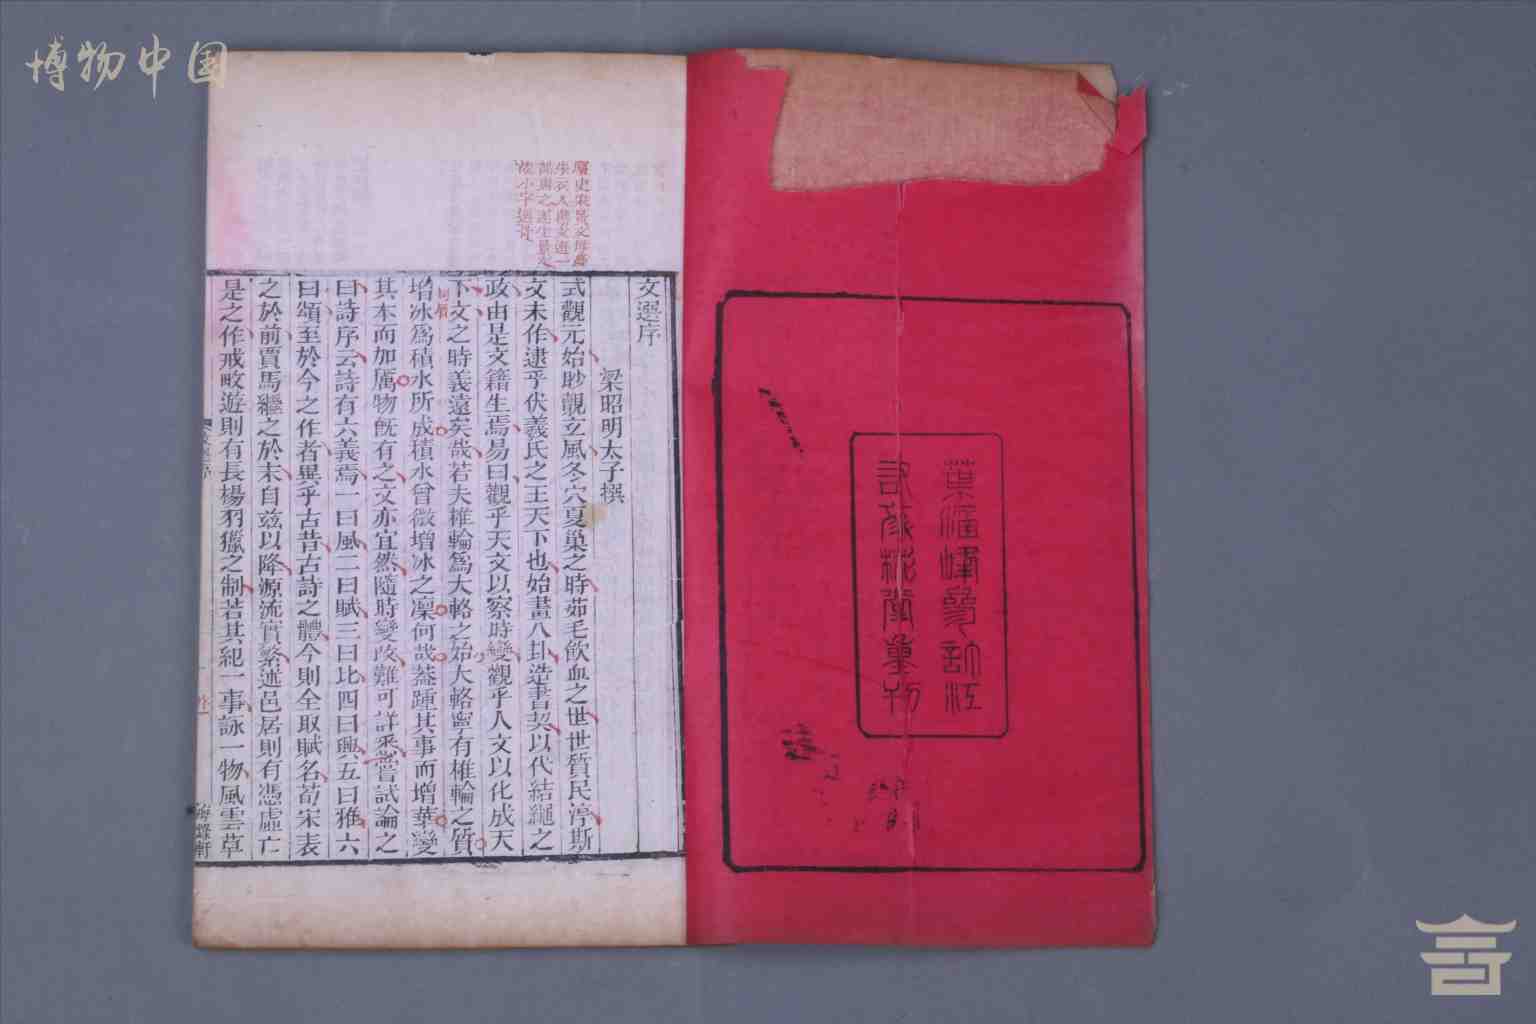 博物中国
葉涵峰
史宋景文母夢
朱衣人攜文選一
部與之遂生景文
故小字選哥
文選序
梁昭明太子撰
式觀元始眇覿玄風冬穴夏巢之時茹毛飲血之世世質民淳斯
文未作逮乎伏羲氏之王天下也始畫八卦造書契以代結繩之
政由是文籍生焉易曰觀乎天文以察時變觀乎人文以化成天
下文之時義遠矣哉若夫椎輪爲大輅之始大輅寧有椎輪之質
增冰爲積水所成積水曾微增冰之凜何哉蓋踵其事而增華變
其本而加厲物旣有之文亦宜然隨時變改難可詳悉嘗試論之
曰詩序云詩有六義焉一曰風二曰賦三曰比四曰興五曰雅六
曰頌至於今之作者異乎古昔古詩之體今則全取賦名荀宋表
之於前賈馬繼之於末自茲以降源流實繁述邑居則有憑虛亡
是之作戒畋遊則有長楊羽獵之制若其紀一事詠一物風雲草
海錄軒